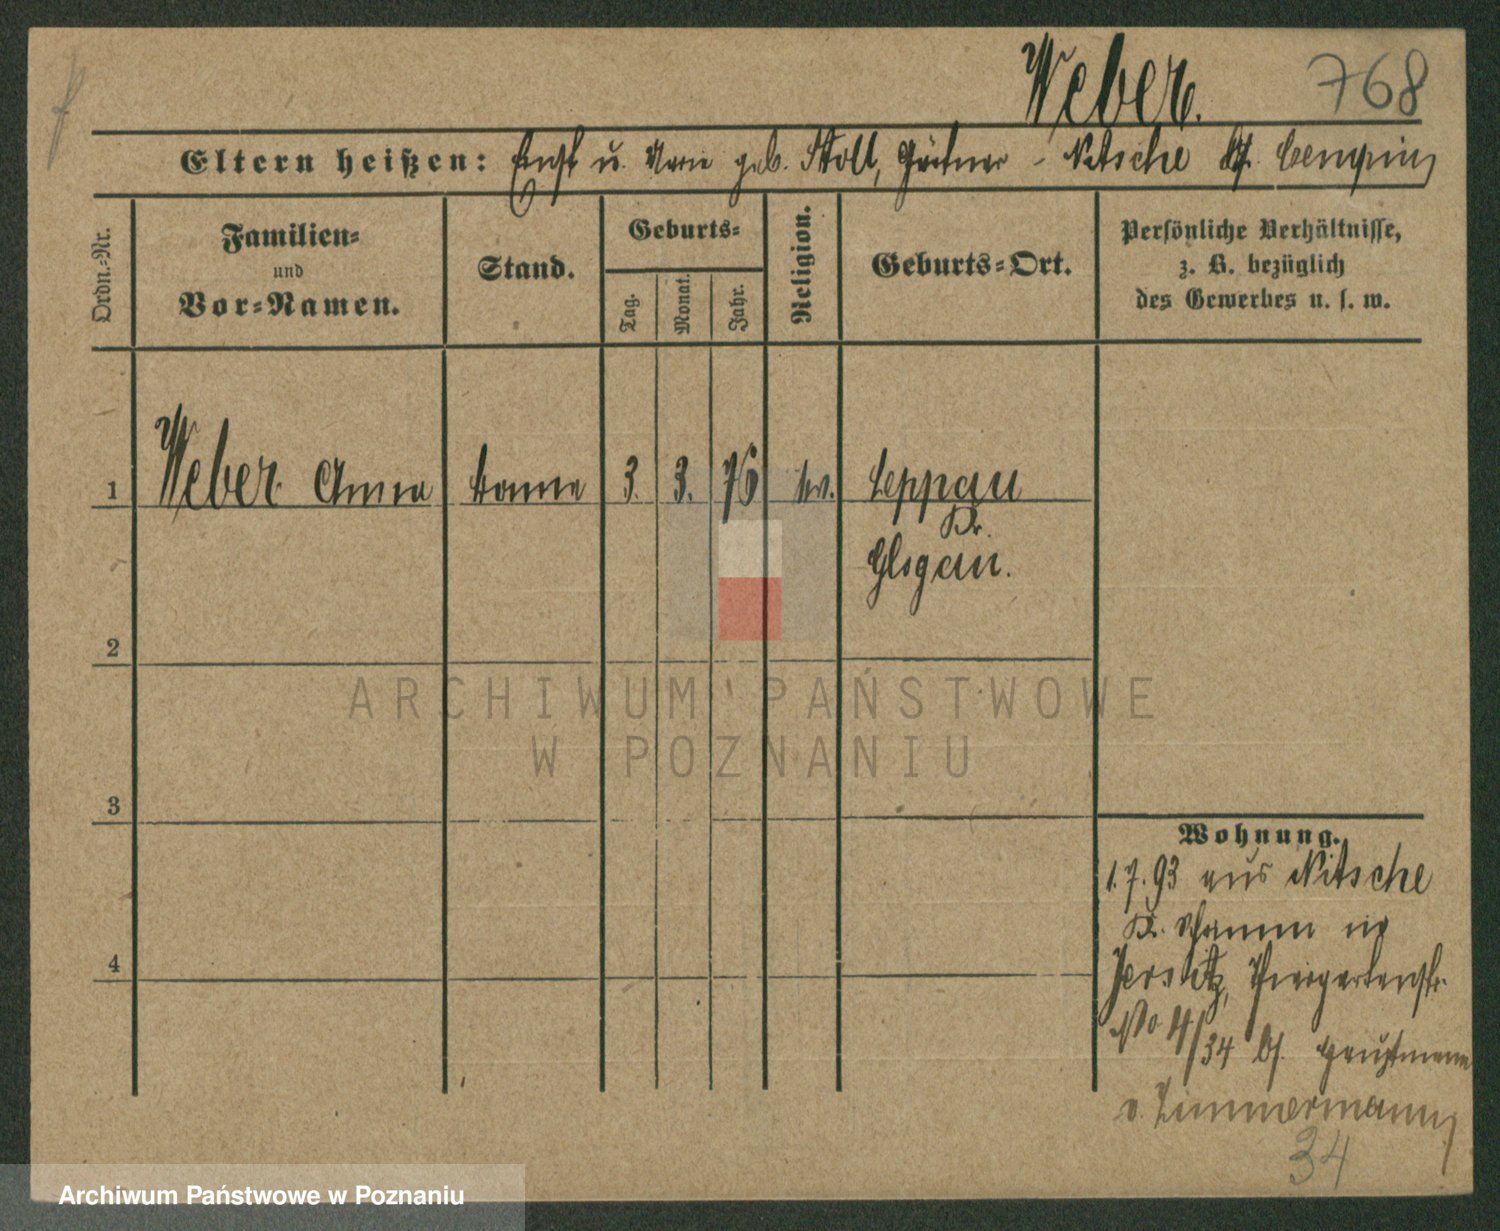 Weber. 768
Eltern heißen: Ernst u. Marie geb. Stoll, Gärtner - Nitsche Czempiń
Ordn.-Nr.
Familien-
und
Vor-Namen.
Stand.
Geburts-
Tag.
Monat.
Jahr.
Religion.
Geburts-Ort.
Persönliche Verhältnisse,
z. B. bezüglich
des Gewerbes u. s. w.
1 Weber Anna Bonne 3. 3. 76 ev. Leppau
Kr.
Glogau.
2
3
4
Wohnung.
1.7.93 aus Nitsche
Kr. Schrimm in
Jersitz, Thiergartenstr.
No 4/34 bei Hauptmann
v. Zimmermann
34
ARCHIWUM PAŃSTWOWE
W POZNANIU
Archiwum Państwowe w Poznaniu